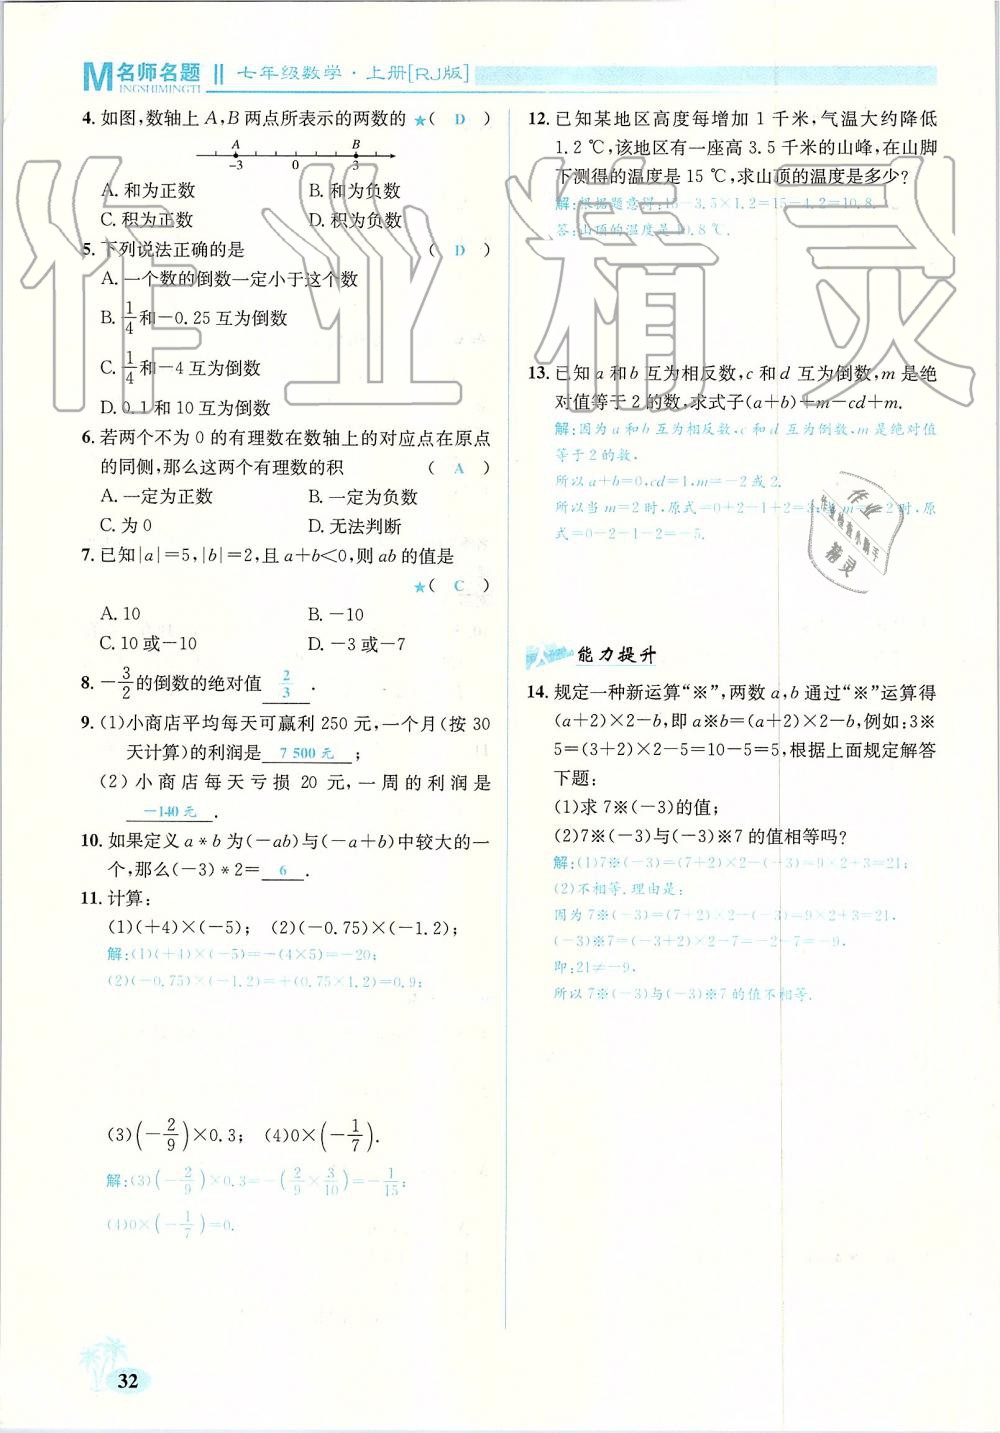 M 名师名题 ‖ 七年级数学·上册[RJ版]
INGSHIMINGTI
4. 如图,数轴上 A,B 两点所表示的两数的 ★( D )
A B
-3 0 3
A. 和为正数 B. 和为负数
C. 积为正数 D. 积为负数
5. 下列说法正确的是 ( D )
A. 一个数的倒数一定小于这个数
B. 1/4 和-0.25 互为倒数
C. 1/4 和-4 互为倒数
D. 0.1 和 10 互为倒数
6. 若两个不为 0 的有理数在数轴上的对应点在原点
的同侧,那么这两个有理数的积 ( A )
A. 一定为正数 B. 一定为负数
C. 为 0 D. 无法判断
7. 已知|a|=5,|b|=2,且 a+b<0,则 ab 的值是
★( C )
A. 10 B. -10
C. 10 或-10 D. -3 或-7
8. -3/2 的倒数的绝对值 2/3 .
9. (1)小商店平均每天可赢利 250 元,一个月(按 30
天计算)的利润是 7 500 元 ;
(2)小商店每天亏损 20 元,一周的利润是
-140 元 .
10. 如果定义 a * b 为(-ab)与(-a+b)中较大的一
个,那么(-3) * 2= 6 .
11. 计算:
(1)(+4)×(-5); (2)(-0.75)×(-1.2);
解:(1)(+4)×(-5)=-(4×5)=-20;
(2)(-0.75)×(-1.2)=+(0.75×1.2)=0.9;
(3)(-2/9)×0.3; (4)0×(-1/7).
解:(3)(-2/9)×0.3=-(2/9×3/10)=-1/15;
(4)0×(-1/7)=0.
32
12. 已知某地区高度每增加 1 千米,气温大约降低
1.2 ℃,该地区有一座高 3.5 千米的山峰,在山脚
下测得的温度是 15 ℃,求山顶的温度是多少?
解:根据题意得:15-3.5×1.2=15-4.2=10.8.
答:山顶的温度是 10.8 ℃.
13. 已知 a 和 b 互为相反数,c 和 d 互为倒数,m 是绝
对值等于 2 的数,求式子(a+b)+m-cd+m.
解:因为 a 和 b 互为相反数,c 和 d 互为倒数,m 是绝对值
等于 2 的数,
所以 a+b=0,cd=1,m=-2 或 2.
所以当 m=2 时,原式=0+2-1+2=3;当 m=-2 时,原
式=0-2-1-2=-5.
能力提升
14. 规定一种新运算“※”,两数 a,b 通过“※”运算得
(a+2)×2-b,即 a※b=(a+2)×2-b,例如:3※
5=(3+2)×2-5=10-5=5,根据上面规定解答
下题:
(1)求 7※(-3)的值;
(2)7※(-3)与(-3)※7 的值相等吗?
解:(1)7※(-3)=(7+2)×2-(-3)=9×2+3=21;
(2)不相等.理由是:
因为 7※(-3)=(7+2)×2-(-3)=9×2+3=21,
(-3)※7=(-3+2)×2-7=-2-7=-9,
即:21≠-9,
所以 7※(-3)与(-3)※7 的值不相等.
作业精灵
作业
精灵